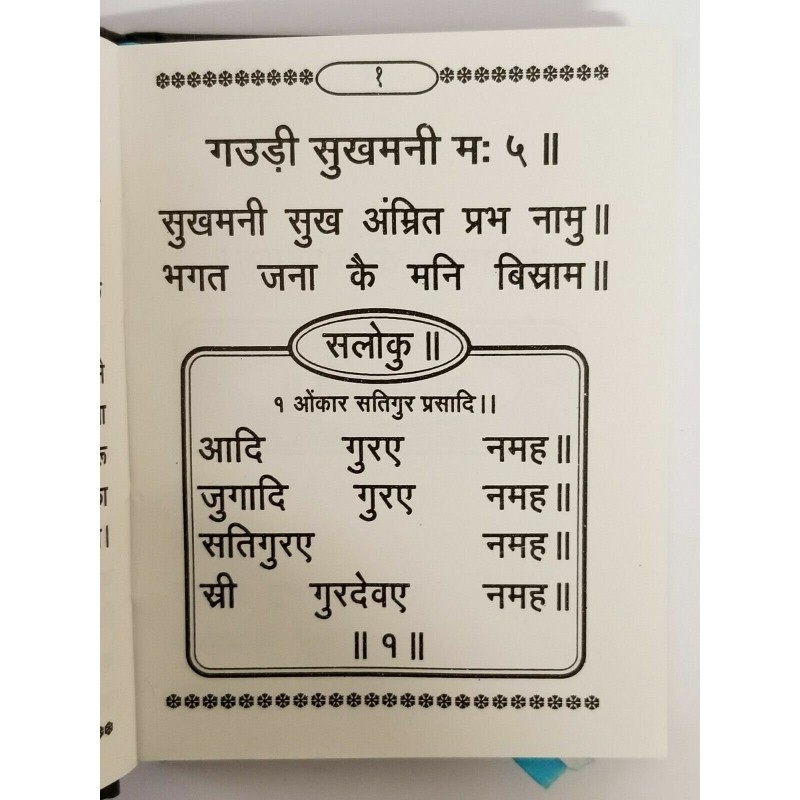 १
गउड़ी सुखमनी म: ५ ॥
सुखमनी सुख अंम्रित प्रभ नामु॥
भगत जना कै मनि बिस्राम॥
सलोकु ॥
१ ओंकार सतिगुर प्रसादि।।
आदि गुरए नमह॥
जुगादि गुरए नमह॥
सतिगुरए नमह॥
स्री गुरदेवए नमह॥
॥ १ ॥